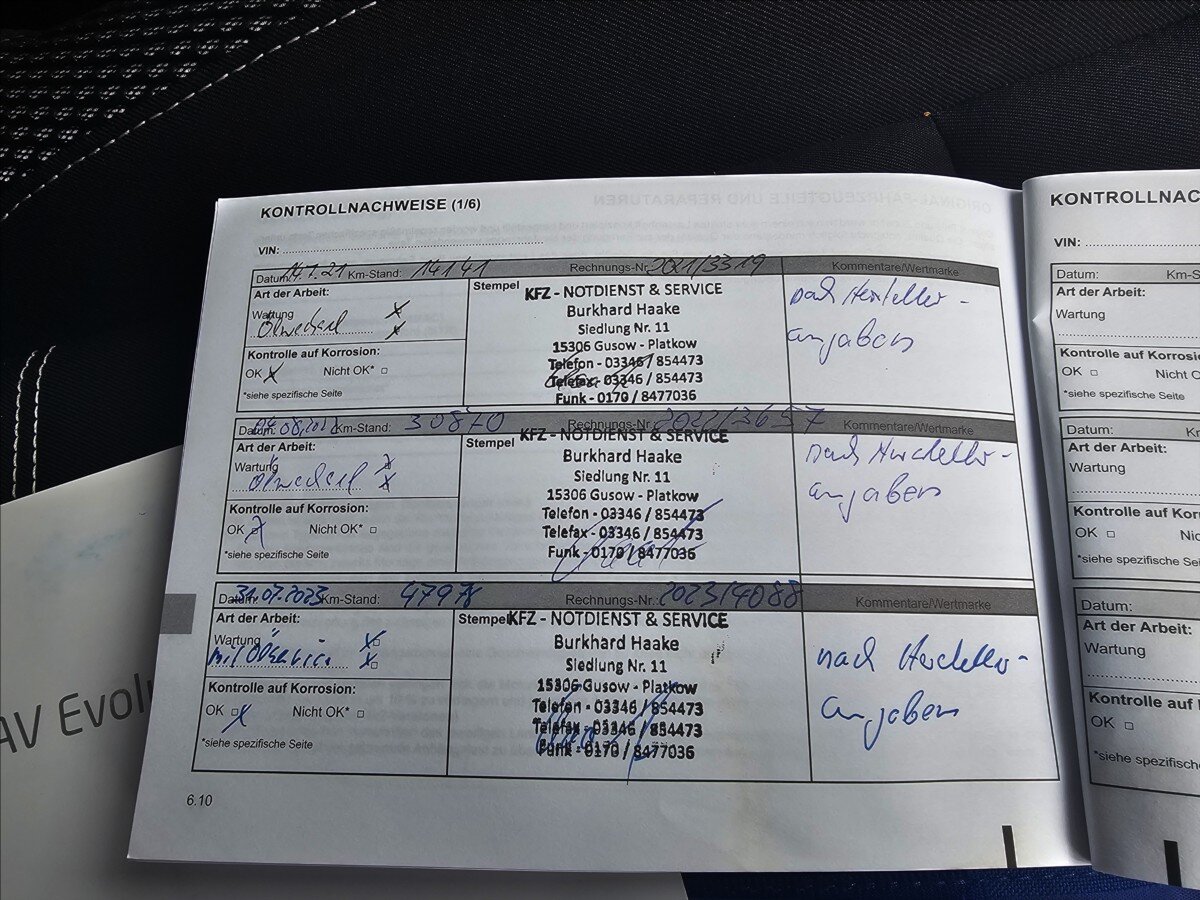 KONTROLLNACHWEISE (1/6)
VIN:
Datum: 14.1.21 Km-Stand: 14141 Rechnungs-Nr.: 2021/3319 Kommentare/Wertmarke
Art der Arbeit:
Wartung
Ölwechsel
Kontrolle auf Korrosion:
OK Nicht OK*
*siehe spezifische Seite
Stempel
KFZ - NOTDIENST & SERVICE
Burkhard Haake
Siedlung Nr. 11
15306 Gusow - Platkow
Telefon - 03346 / 854473
Telefax - 03346 / 854473
Funk - 0170 / 8477036
nach Hersteller-
angaben
Datum: Km-Stand: 30870 Rechnungs-Nr.: 2022/3657 Kommentare/Wertmarke
Art der Arbeit:
Wartung
Ölwechsel
Kontrolle auf Korrosion:
OK Nicht OK*
*siehe spezifische Seite
Stempel
KFZ - NOTDIENST & SERVICE
Burkhard Haake
Siedlung Nr. 11
15306 Gusow - Platkow
Telefon - 03346 / 854473
Telefax - 03346 / 854473
Funk - 0170 / 8477036
nach Hersteller-
angaben
Datum: 31.07.2023 Km-Stand: 47978 Rechnungs-Nr.: 2023/4088 Kommentare/Wertmarke
Art der Arbeit:
Wartung
mit Ölservice
Kontrolle auf Korrosion:
OK Nicht OK*
*siehe spezifische Seite
Stempel
KFZ - NOTDIENST & SERVICE
Burkhard Haake
Siedlung Nr. 11
15306 Gusow - Platkow
Telefon - 03346 / 854473
Telefax - 03346 / 854473
Funk - 0170 / 8477036
nach Hersteller-
angaben
6.10
KONTROLLNA
VIN:
Datum: Km-S
Art der Arbeit:
Wartung
Kontrolle auf Korrosion
OK Nicht O
*siehe spezifische Seite
Datum: Km
Art der Arbeit:
Wartung
Kontrolle auf Korrosio
OK Nic
*siehe spezifische Seit
Datum:
Art der Arbeit:
Wartung
Kontrolle auf
OK
*siehe spezifische S
AV Evolu